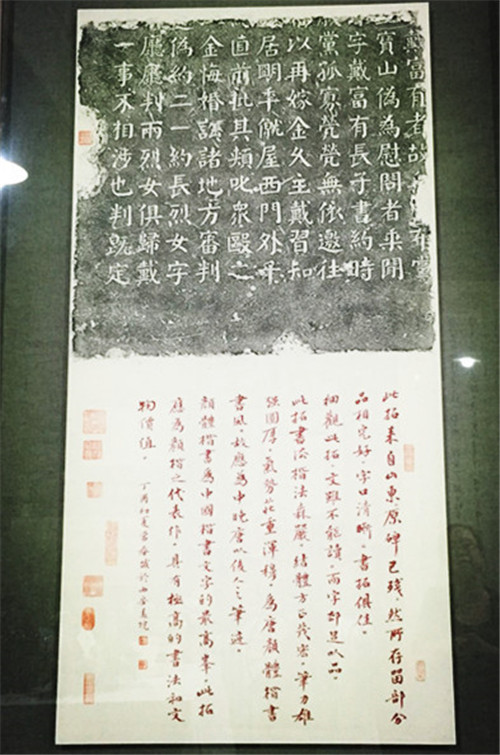 戴富有者故
寶山偽為慰問者乘間
字戴富有長子書約時
黨孤寡煢煢無依邀往
以再嫁金久主戴習知
居明年僦屋西門外
直前批其頰叱眾毆之
金悔婚訟諸地方審判
偽約二一約長烈女字
廳廳判兩烈女俱歸戴
一事不相涉也判既定
此拓来自山東原碑已殘。然所存留部分
品相完好。字口清晰。書拓俱佳。
細觀此拓。文雖不能讀。而字却足以品。
此拓書法楷法森嚴。結體方正茂密。筆力雄
強圓厚。氣勢莊重渾穆。為唐顏體楷書
書風。故應為中晚唐以後人之筆迹。
顏體楷書為中國楷書文字的最高峯。此拓
應為顏楷之代表作。具有極高的書法和文
物價值。
丁酉初夏